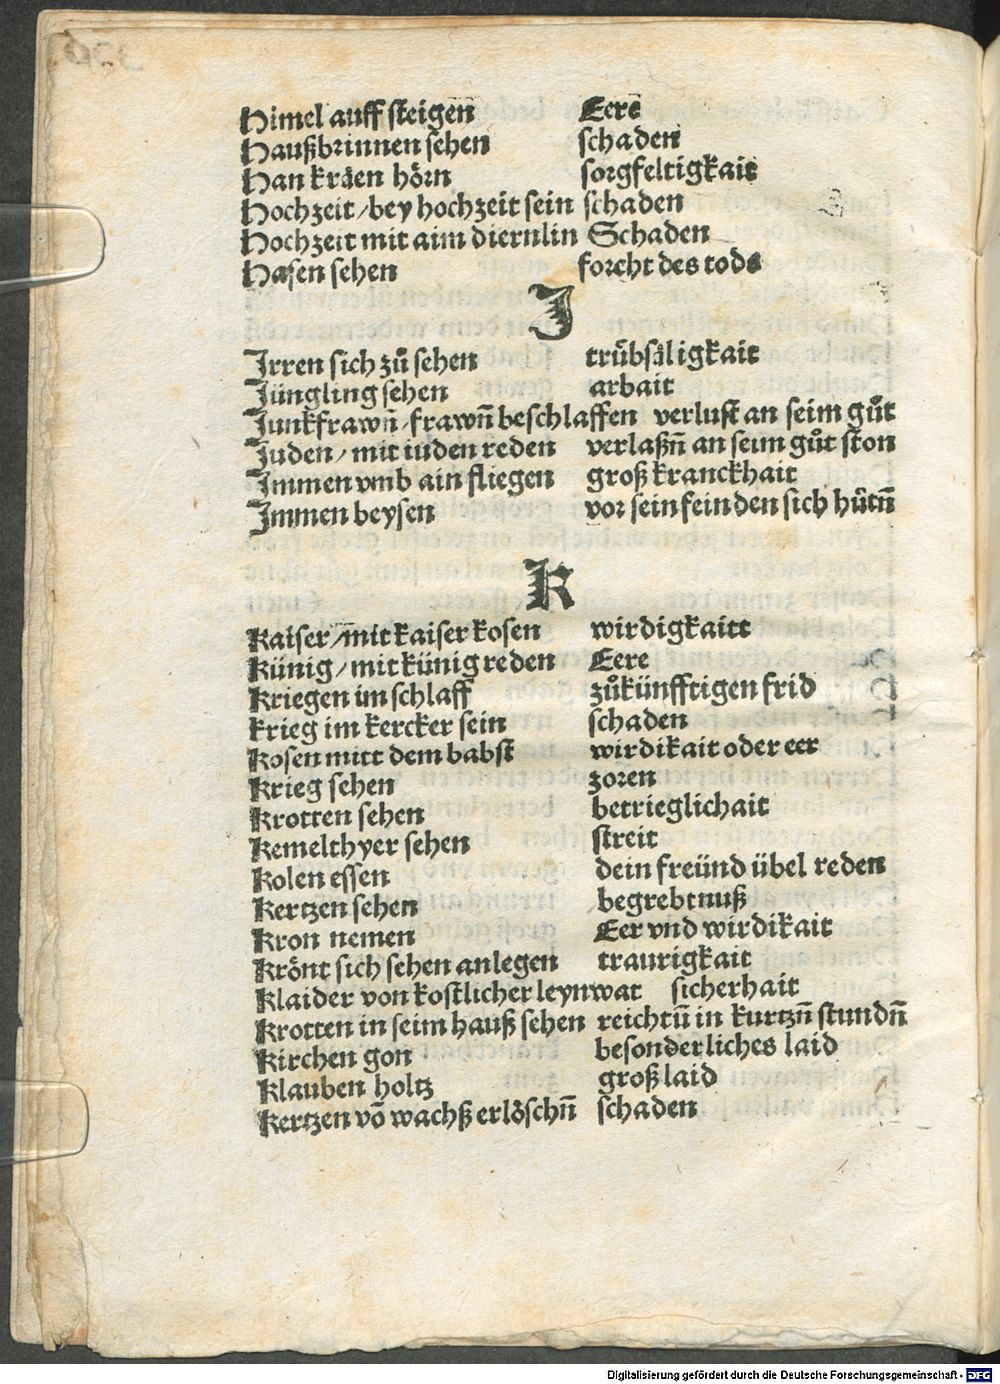 Himel auff steigen Eere
Haußbrinnen sehen schaden
Han kräen hörn sorgfeltigkait
Hochzeit/bey hochzeit sein schaden
Hochzeit mit aim diernlin Schaden
Hasen sehen forcht des tods
J
Jrren sich zuͦ sehen trübsäligkait
Jüngling sehen arbait
Junkfrawn̄/frawn̄ beschlaffen verlust an seim guͦt
Juden/mit iuden reden verlaßn̄ an seim guͦt ston
Jmmen vmb ain fliegen groß kranckhait
Jmmen beysen vor sein feinden sich hütn̄
K
Kaiser/mit kaiser kosen wirdigkaitt
Künig/mit künig reden Eere
Kriegen im schlaff zuͦkünfftigen frid
krieg im kercker sein schaden
Kosen mitt dem babst wirdikait oder eer
Krieg sehen zoren
Krotten sehen betrieglichait
Kemelthyer sehen streit
Kolen essen dein freünd übel reden
Kertzen sehen begrebtnuß
Kron nemen Eer vnd wirdikait
Krönt sich sehen anlegen traurigkait
Klaider von kostlicher leynwat sicherhait
Krotten in seim hauß sehen reichtū in kurtzn̄ stundn̄
Kirchen gon besonderliches laid
Klauben holtz groß laid
Kertzen vō wachß erlöschn̄ schaden
Digitalisierung gefördert durch die Deutsche Forschungsgemeinschaft - DFG